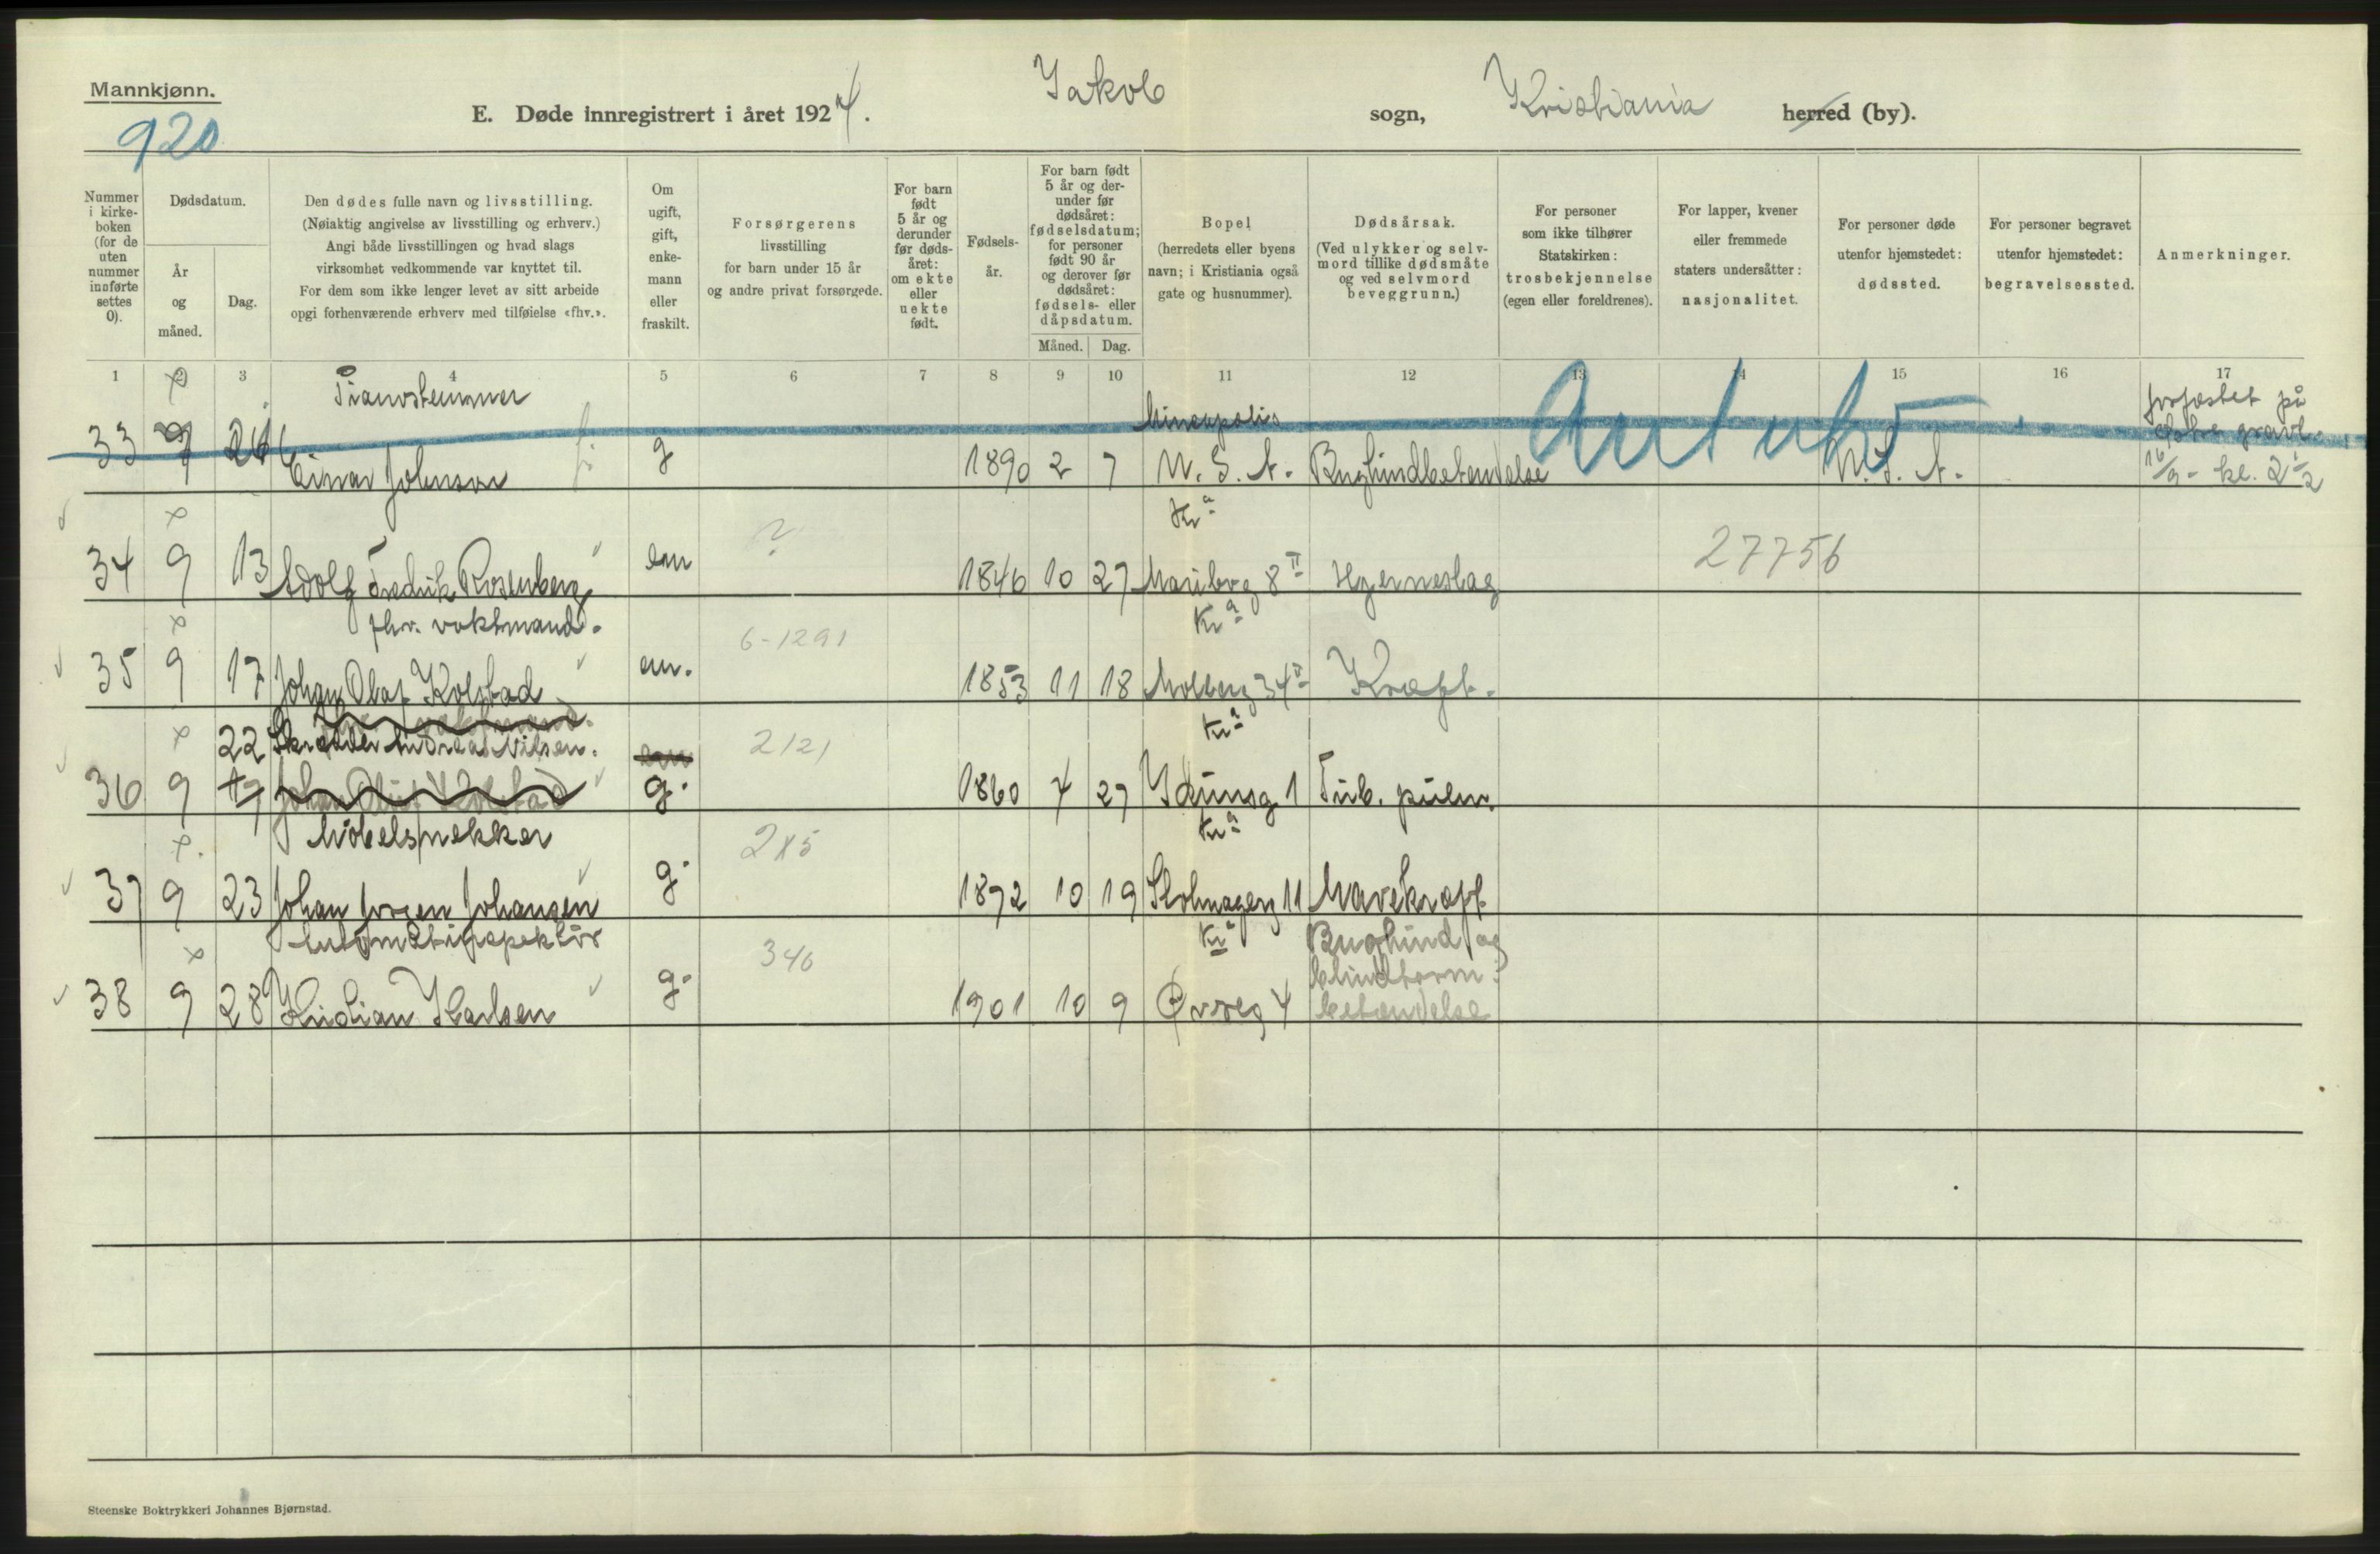 Mannkjønn.
920
E. Døde innregistrert i året 1924.
Jakob sogn, Kristiania herred (by).
Nummer i kirke-boken (for de uten nummer innførte settes 0).
Dødsdatum.
År og måned.
Dag.
Den dødes fulle navn og livsstilling.
(Nøiaktig angivelse av livsstilling og erhverv.)
Angi både livsstillingen og hvad slags
virksomhet vedkommende var knyttet til.
For dem som ikke lenger levet av sitt arbeide
opgi forhenværende erhverv med tilføielse «fhv.».
Om ugift, gift, enke-mann eller fraskilt.
Forsørgerens
livsstilling
for barn under 15 år
og andre privat forsørgede.
For barn født 5 år og derunder før døds-året: om ekte eller uekte født.
Fødsels-år.
For barn født 5 år og der-under før dødsåret: fødselsdatum; for personer født 90 år og derover før dødsåret: fødsels- eller dåpsdatum.
Måned. Dag.
Bopel
(herredets eller byens
navn; i Kristiania også
gate og husnummer).
Dødsårsak.
(Ved ulykker og selv-
mord tillike dødsmåte
og ved selvmord
beveggrunn.)
For personer
som ikke tilhører
Statskirken:
trosbekjennelse
(egen eller foreldrenes).
For lapper, kvener
eller fremmede
staters undersåtter:
nasjonalitet.
For personer døde
utenfor hjemstedet:
dødssted.
For personer begravet
utenfor hjemstedet:
begravelsessted.
Anmerkninger.
1 2 3 4 5 6 7 8 9 10 11 12 13 14 15 16 17
Pianostemmer
Mineapolis
33 Einar Johnson g 1890 2 7 U.S.A. Bughindbetendelse U.S.A. 16/9 - kl. 2 1/2
Kra
34 9 13 Adolf Fredrik Rosenberg em ? 1846 10 27 Maribog 8 II Hjerneslag 27756
fhv. vaktmand. Kra
35 9 17 Johan Olaf Kolstad em. 6-1291 1853 11 18 Molberg 34 II Kræft.
22 Skrædder Andreas Nilsen. 2121 Kra
36 9 Johan Olaf Kolstad g. 1860 4 27 Idunsg 1 Tub. pulm.
Møbelsnekker Kra
37 9 23 Johan Jørgen Johansen g. 285 1872 10 19 Stolmagerg 11 Mavekræft
Automatinspektør 346 Kra Bughind og
38 9 28 Kristian Karlsen g. 1901 10 9 Øvreg 4 blindtarm-
betendelse
Steenske Boktrykkeri Johannes Bjørnstad.